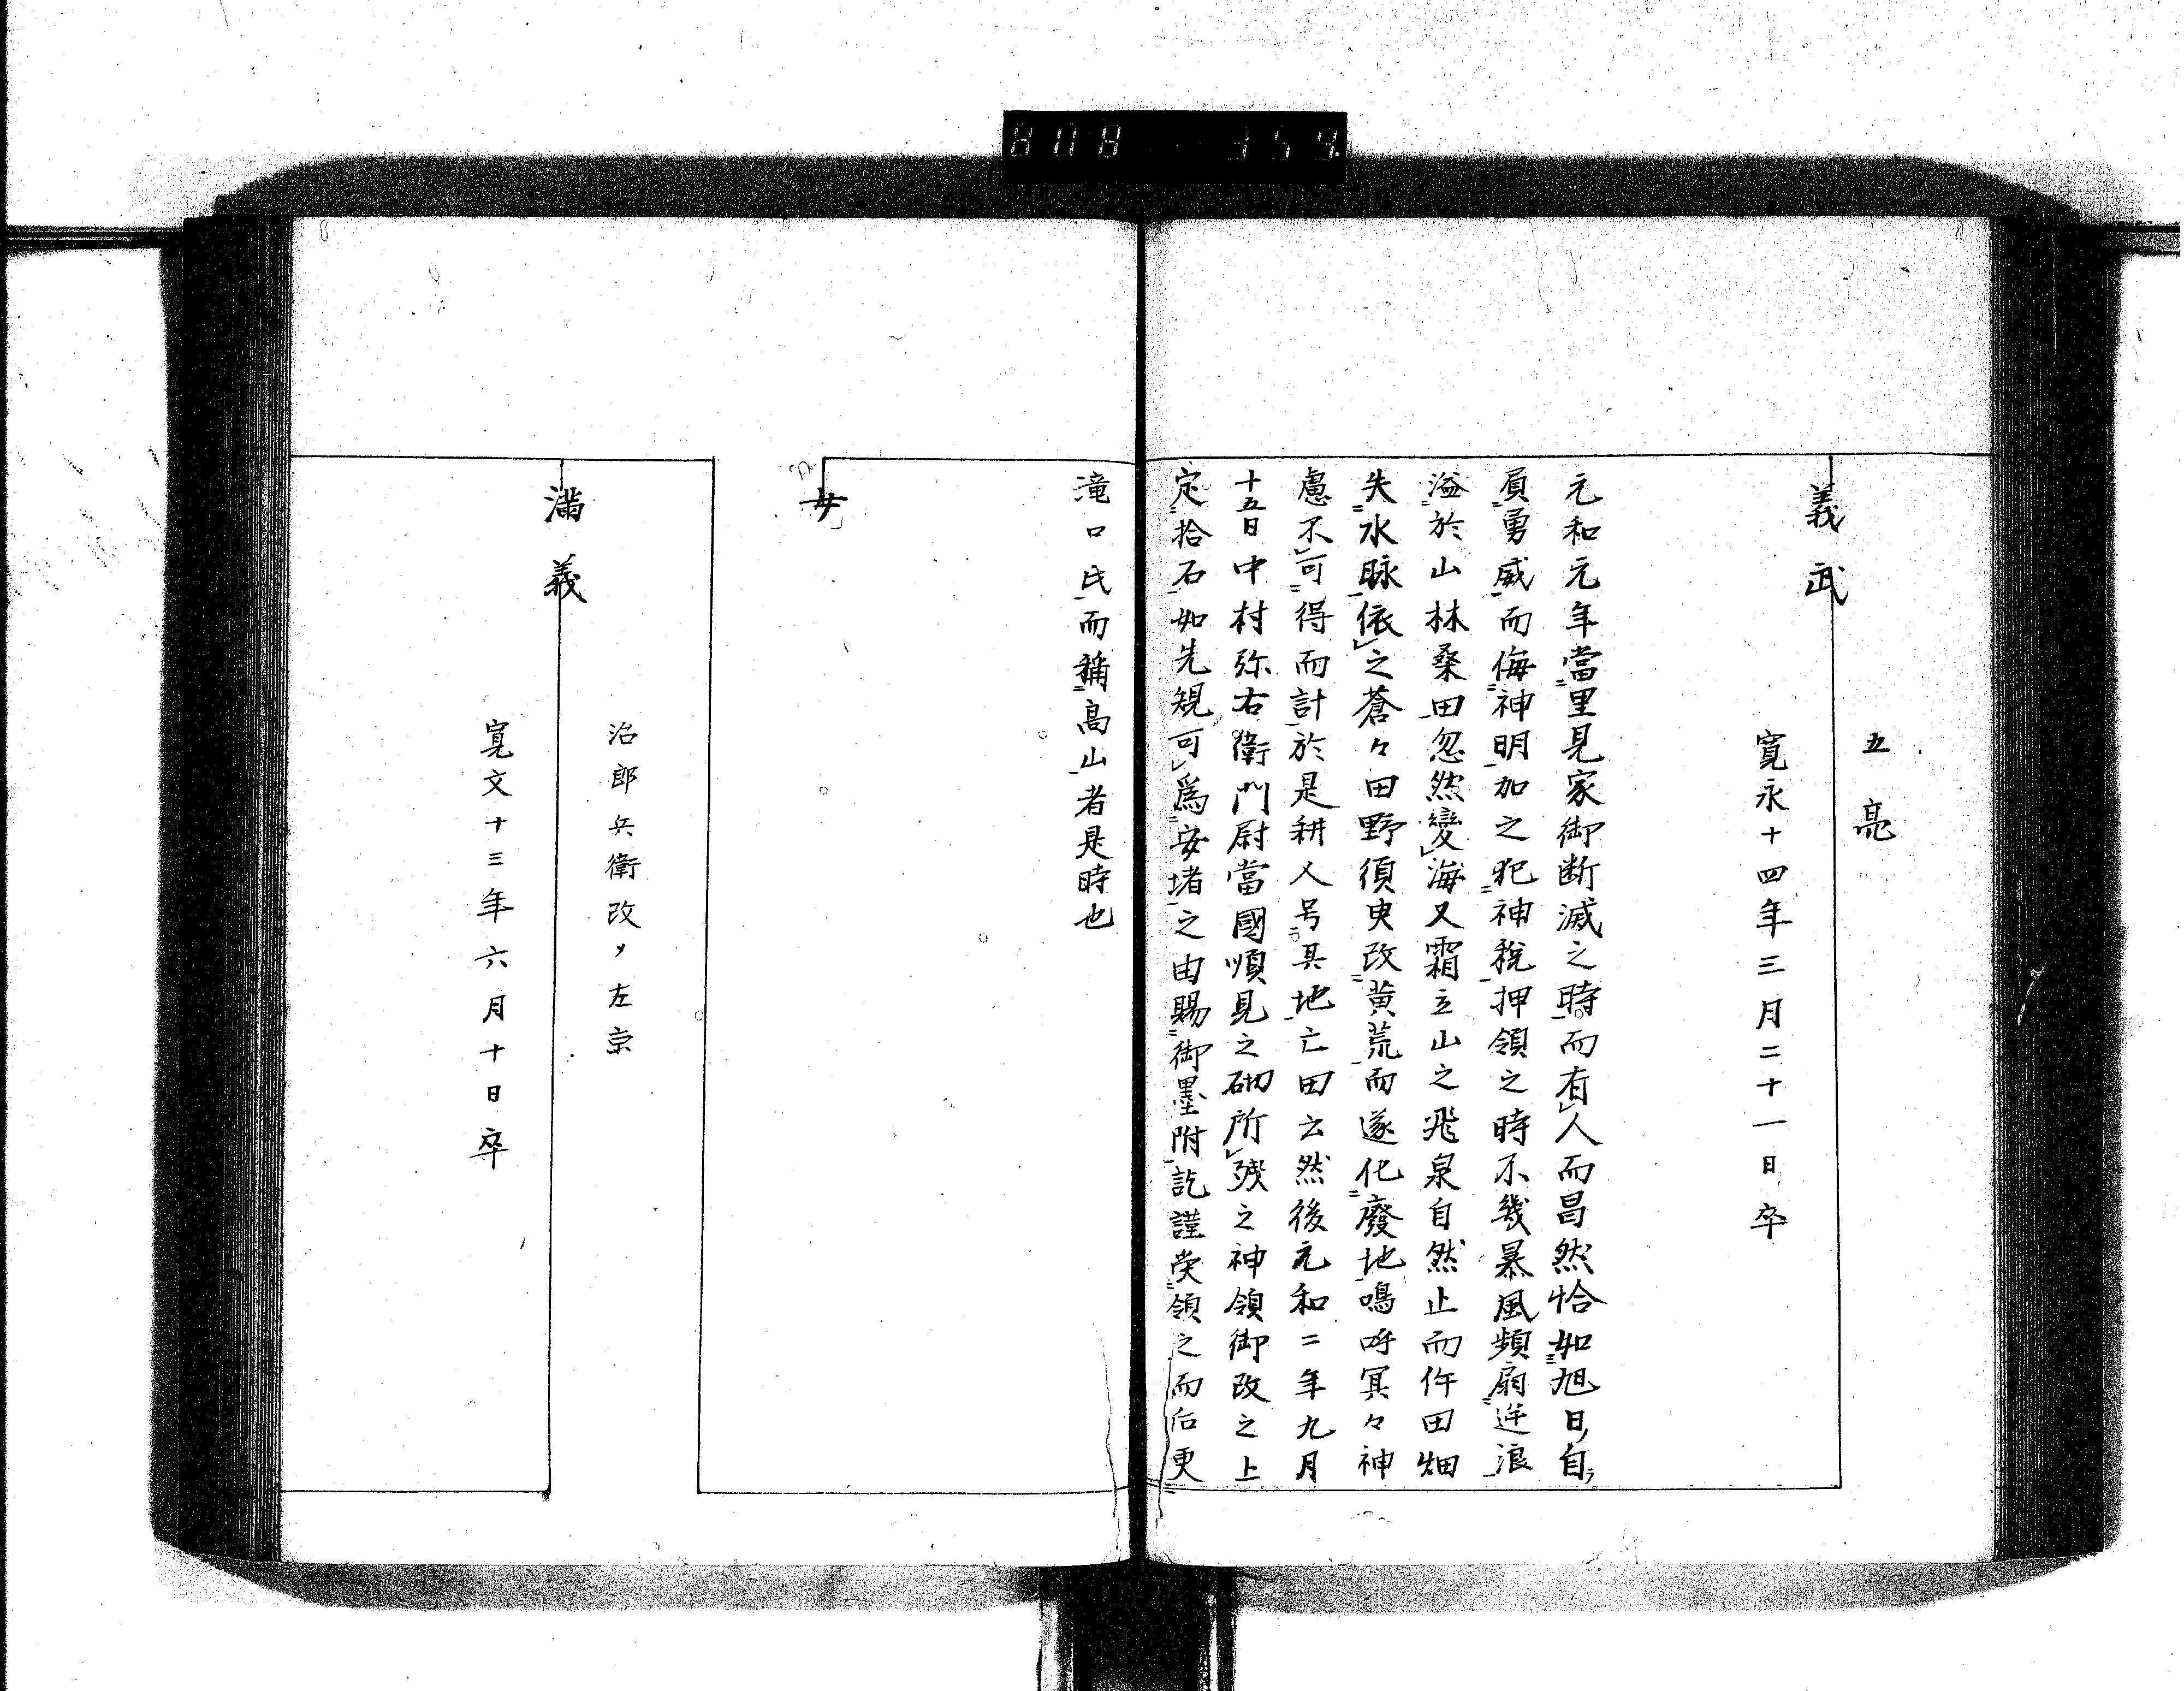 五亮
義武
寛永十四年三月二十一日卒
元和元年當里見家御断滅之時而有人而昌然恰如旭日自
負勇威而侮神明加之犯神税押領之時不幾暴風頻扇逆浪
溢於山林桑田忽然變海又霜立山之飛泉自然止而仵田畑
失水脉依之蒼々田野須臾改黄荒而遂化廢地鳴呼冥々神
慮不可得而計於是耕人号其地亡田云然後元和二年九月
十五日中村弥右衛門尉當國順見之砌所残之神領御改之上
定拾石如先規可為安堵之由賜御墨附訖謹受領之而后更
滝口氏而稱高山者是時也
女
治郎兵衛改メ左京
満義
寛文十三年六月十日卒